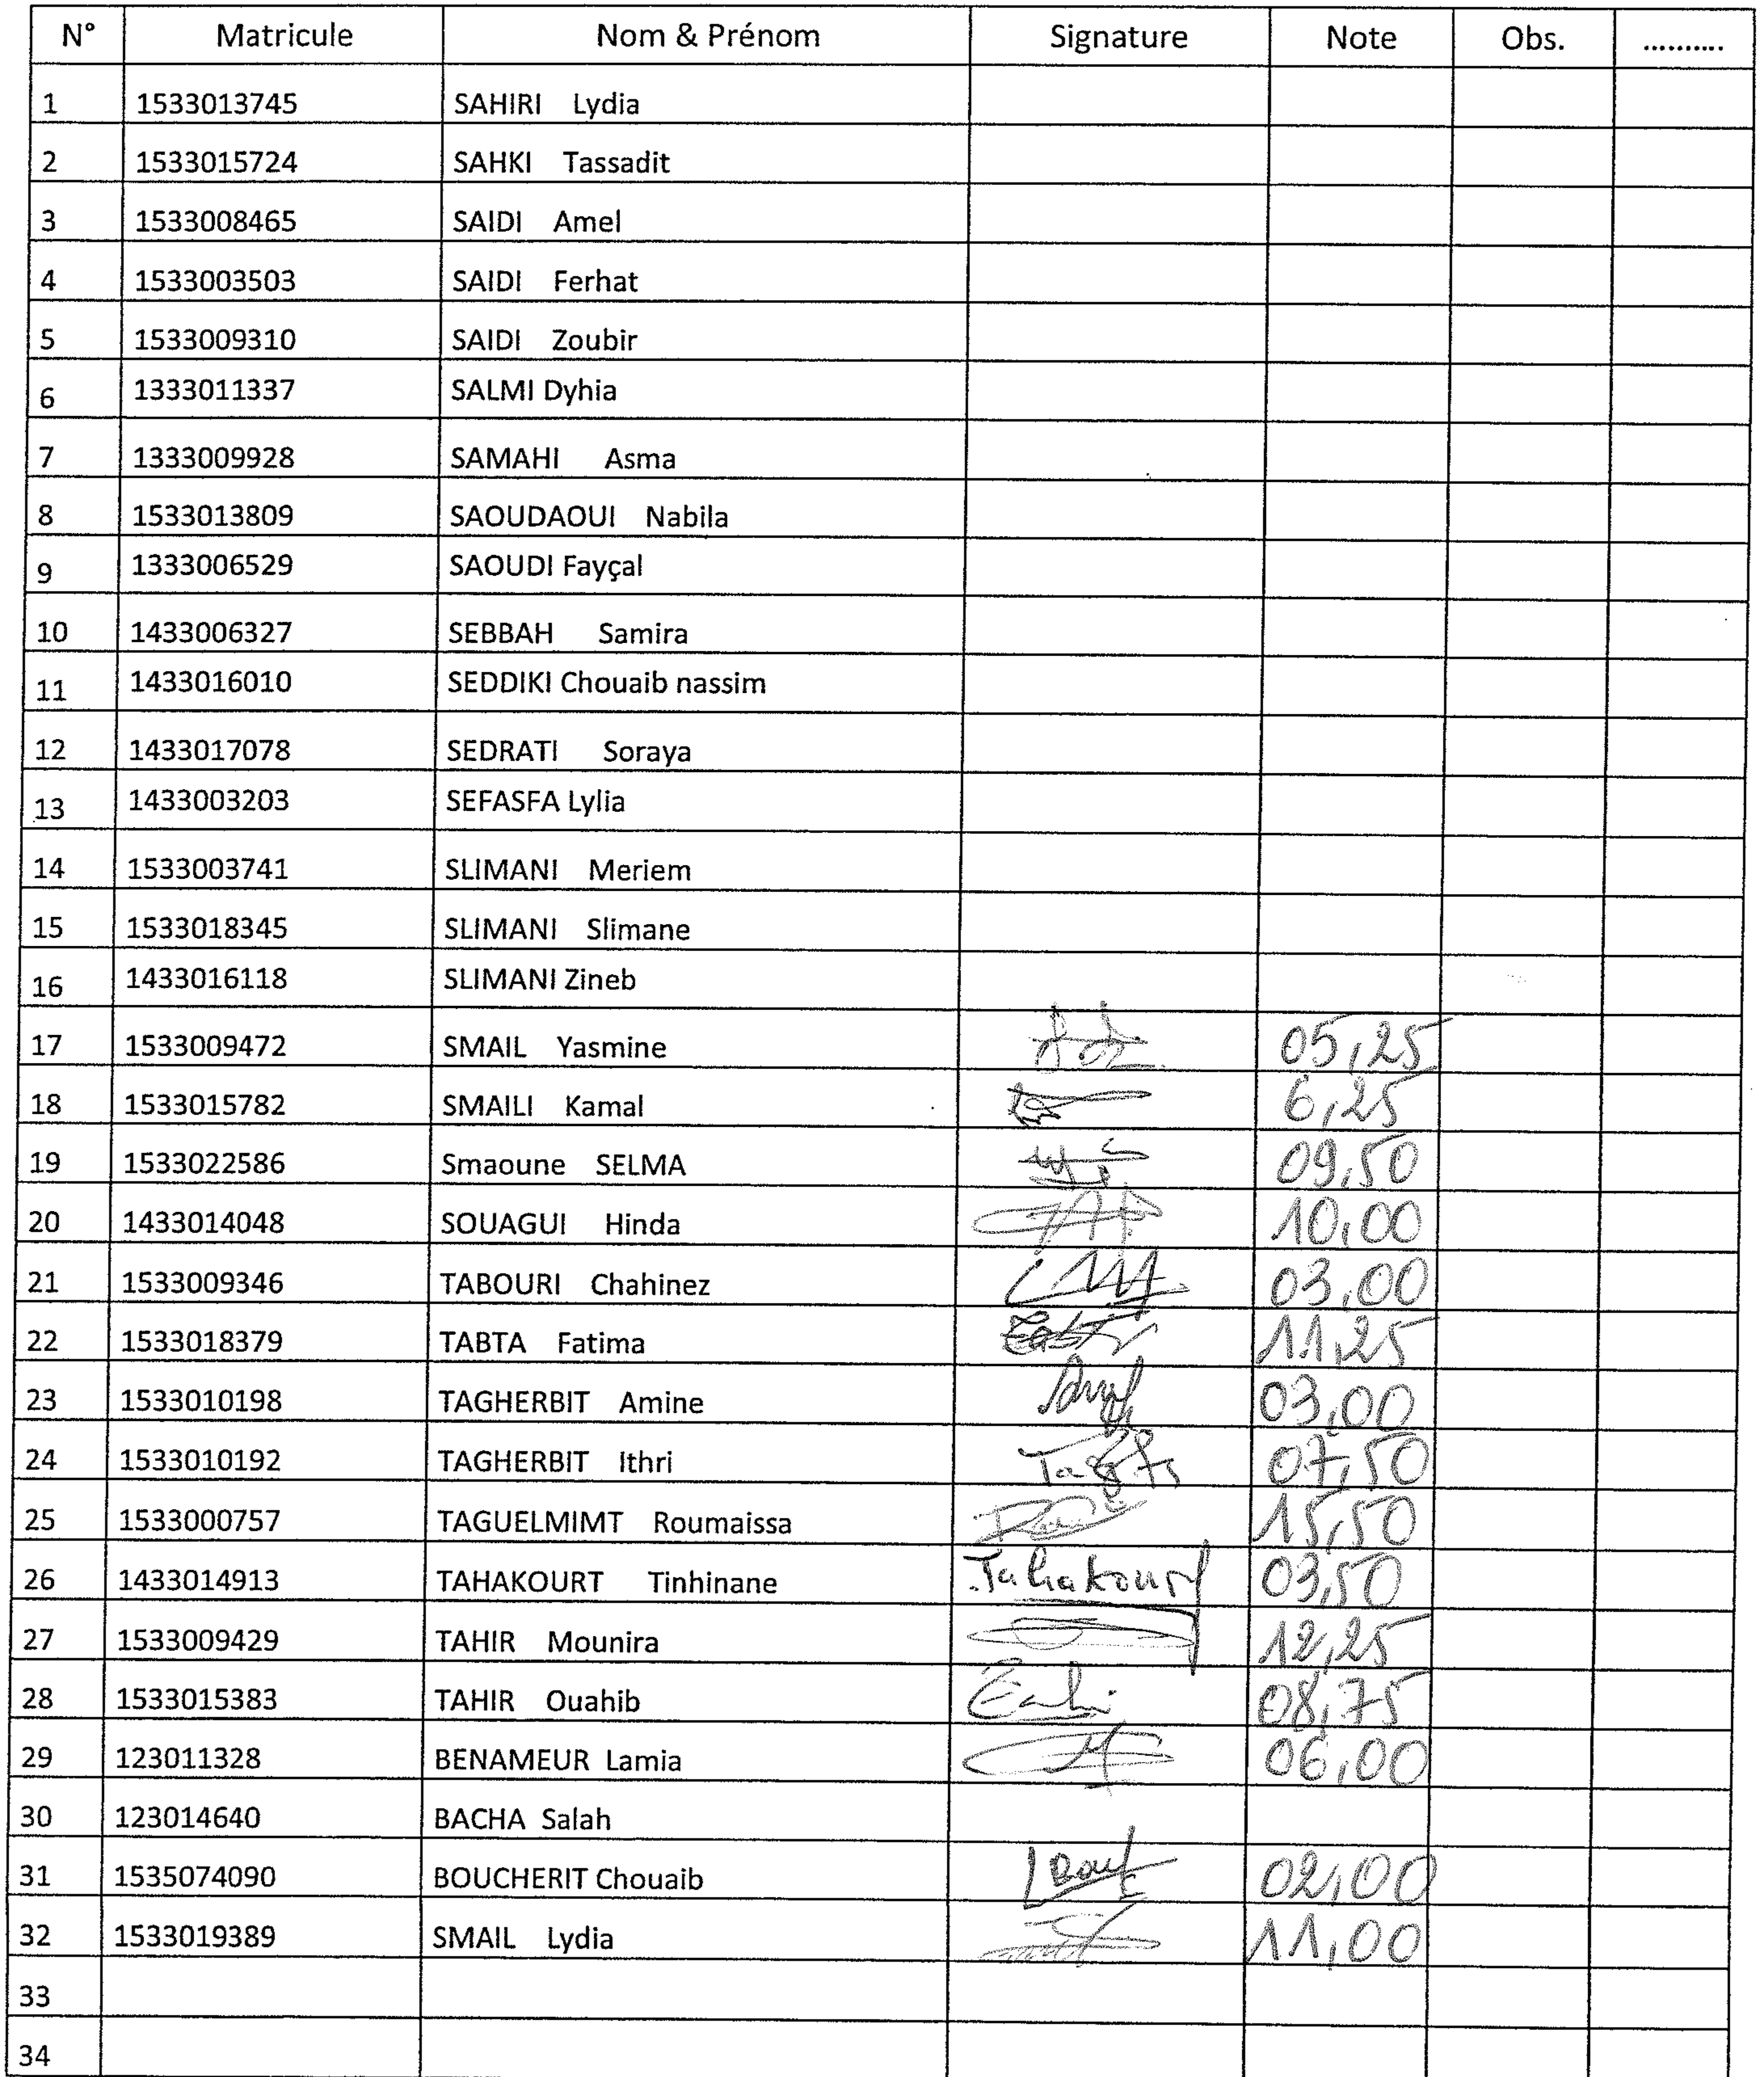 N° Matricule Nom & Prénom Signature Note Obs. ..........
1 1533013745 SAHIRI Lydia
2 1533015724 SAHKI Tassadit
3 1533008465 SAIDI Amel
4 1533003503 SAIDI Ferhat
5 1533009310 SAIDI Zoubir
6 1333011337 SALMI Dyhia
7 1333009928 SAMAHI Asma
8 1533013809 SAOUDAOUI Nabila
9 1333006529 SAOUDI Fayçal
10 1433006327 SEBBAH Samira
11 1433016010 SEDDIKI Chouaib nassim
12 1433017078 SEDRATI Soraya
13 1433003203 SEFASFA Lylia
14 1533003741 SLIMANI Meriem
15 1533018345 SLIMANI Slimane
16 1433016118 SLIMANI Zineb
17 1533009472 SMAIL Yasmine 05,25
18 1533015782 SMAILI Kamal 6,25
19 1533022586 Smaoune SELMA 09,50
20 1433014048 SOUAGUI Hinda 10,00
21 1533009346 TABOURI Chahinez 03,00
22 1533018379 TABTA Fatima 11,25
23 1533010198 TAGHERBIT Amine 03,00
24 1533010192 TAGHERBIT Ithri 07,50
25 1533000757 TAGUELMIMT Roumaissa 15,50
26 1433014913 TAHAKOURT Tinhinane Tahakourt 03,50
27 1533009429 TAHIR Mounira 12,25
28 1533015383 TAHIR Ouahib 08,75
29 123011328 BENAMEUR Lamia 06,00
30 123014640 BACHA Salah
31 1535074090 BOUCHERIT Chouaib 02,00
32 1533019389 SMAIL Lydia 11,00
33
34